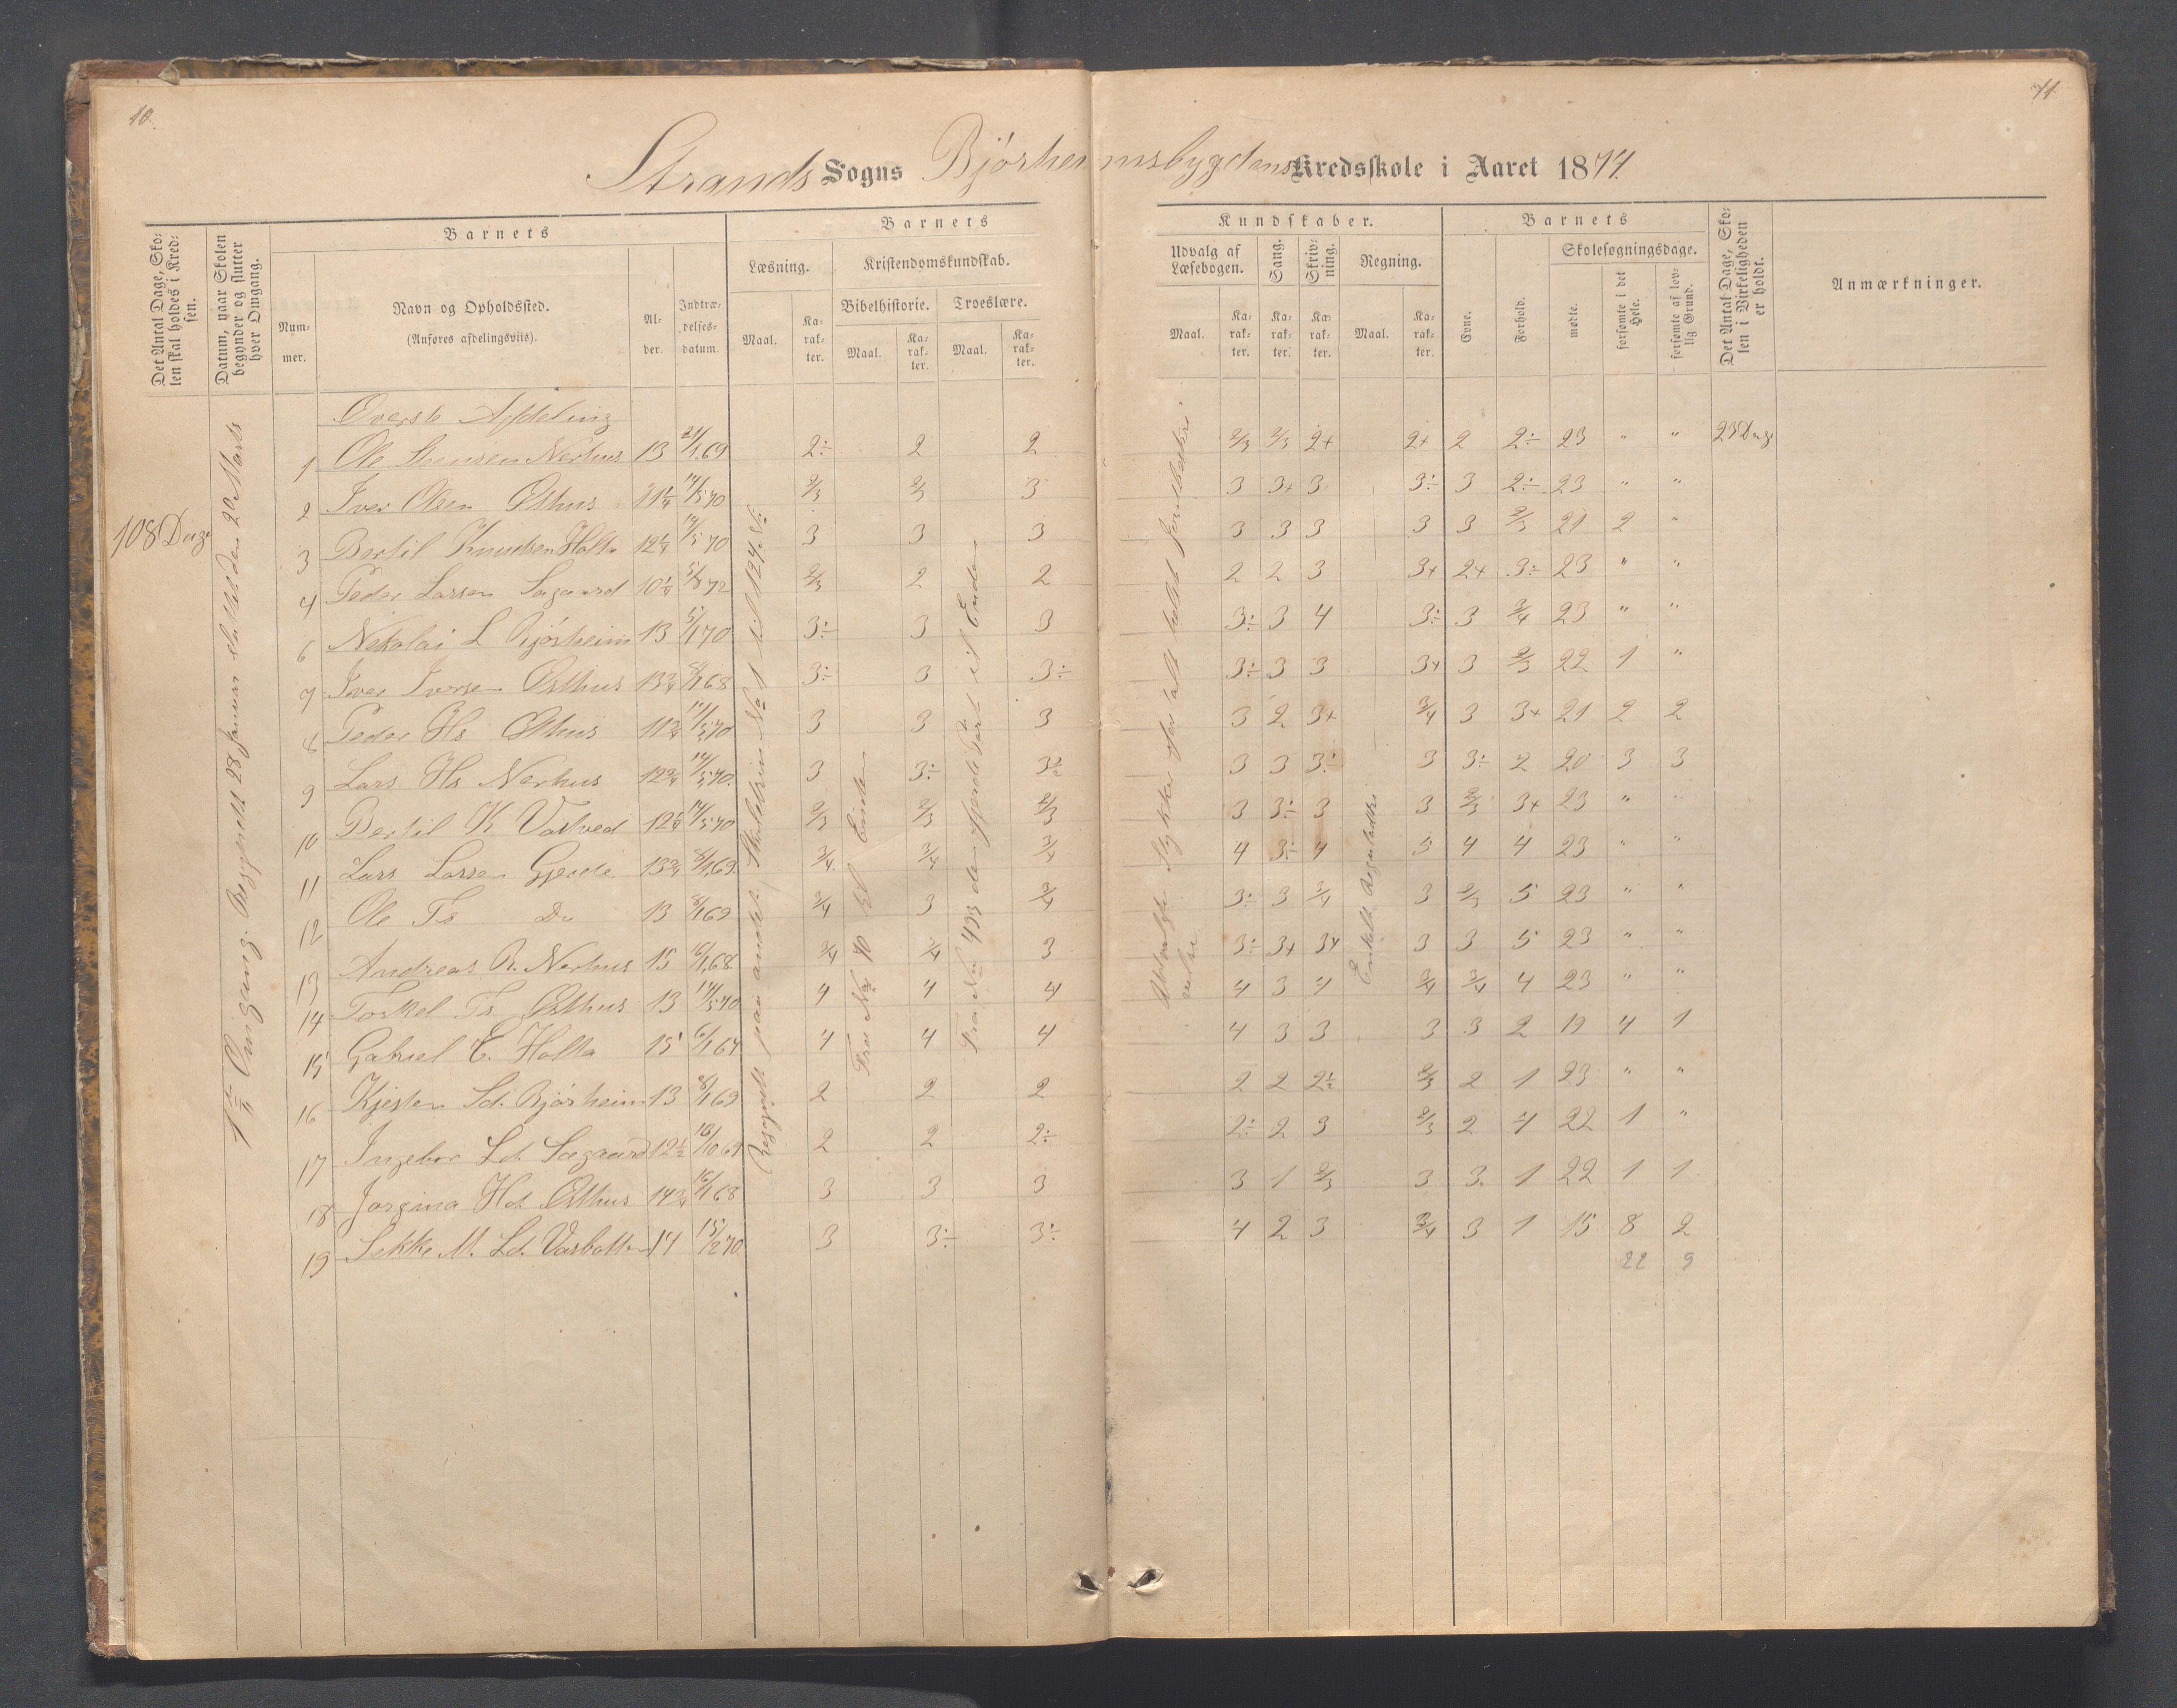 10.
11.
Strands Sogns Bjørheimsbygdens Kredsskole i Aaret 1874.
Det Antal Dage, Skolen skal holdes i Kredsen.
Datum, naar Skolen begynder og slutter hver Omgang.
Barnets
Nummer.
Navn og Opholdssted.
(Anføres afdelingsviis).
Alder.
Indtrædelsesdatum.
Barnets
Læsning.
Kristendomskundskab.
Bibelhistorie.
Troeslære.
Maal.
Karakter.
Maal.
Karakter.
Maal.
Karakter.
Kundskaber.
Udvalg af Læsebogen.
Sang.
Skrivning.
Regning.
Maal.
Karakter.
Karakter.
Karakter.
Maal.
Karakter.
Barnets
Evne.
Forhold.
Skolesøgningsdage.
mødte.
forsømte i det Hele.
forsømte af lovlig Grund.
Det Antal Dage, Skolen i Virkeligheden er holdt.
Anmærkninger.
108 Dage
1ste Omgang. Begyndt 28 Januar sluttet den 20 Marts
Øverste Afdeling
1 Ole Nerhus 13 21/1 69 2÷ 2 2 2/3 2/3 2+ 2+ 2 2÷ 23 " " 23 Dage
2 Iver Olsen Østhus 11 1/4 14/5 70 2/3 2/3 3 3 3+ 3 3÷ 3 2÷ 23 " "
3 Bertil Knudsen Holta 12 1/4 14/5 70 3 3 3 3 3 3 3 3 2/3 21 2 "
4 Peder Larsen Sagaard 10 1/4 5/8 72 2/3 2 2 2 2 3 3+ 2+ 3÷ 23 " "
6 Nekolai L Bjørheim 13 5/1 70 3÷ 3 3 3÷ 3 4 3÷ 3 3/4 23 " "
7 Iver Iversen Østhus 13 3/4 8/1 68 3÷ 3 3÷ 3÷ 3 3 3+ 3 2/3 22 1 "
8 Peder Hs Østhus 11 3/4 14/5 70 3 3 3 3 2 3+ 3/4 3 3+ 21 2 2
9 Lars Hs Nerhus 12 3/4 14/5 70. 3 3÷ 3÷ 3 3 3÷ 3 3÷ 2 20 3 3
10 Bertil K Vastved 12 1/4 14/5 70 2/3 2/3 2/3 3 3÷ 3 3 2/3 3+ 23 " "
11 Lars Larsen Gjerde 13 3/4 8/1 69. 3/4 3/4 3/4 4 3÷ 4 3 4 4 23 " "
12 Ole Ts Do 13 8/1 69 3/4 3 3/4 3÷ 3 3/4 3 2/3 5 23 " "
13 Andreas R. Nerhus 15 16/1 68 3/4 3/4 3 3÷ 3+ 3+ 3 3 5 23 " "
14 Torkel Ts Østhus 13 14/5 70 4 4 4 4 3 4 3/4 3/4 4 23 " "
15 Gabriel E. Holta 15 6/1 67 4 4 4 4 3 3 3 3 2 19 4 1
16 Kjesten Sd. Bjørheim 13 8/1 69 2 2 2 2 2 2÷ 2/3 2 1 23 " "
17 Ingebor Ld. Sagaard 12 1/2 18/10 69 2 2 2÷ 2÷ 2 3 2/3 2 4 22 1 "
18 Jorgina Hd. Østhus 14 3/4 16/1 68 3 3 3 3 1 2/3 3 3. 1 22 1 1
19 Sekke M. Ld. Vasbotten 14 15/12 70 3 3÷ 3÷ 4 2 3 3/4 3 1 15 8 2
22 9
Begyndt paa andet Skriftelsen No 1 til 124 No
Fra No 70 til Enden
Fra No 493 den fjerde Part til Enden
Stykker
Enkelt Reguladetri